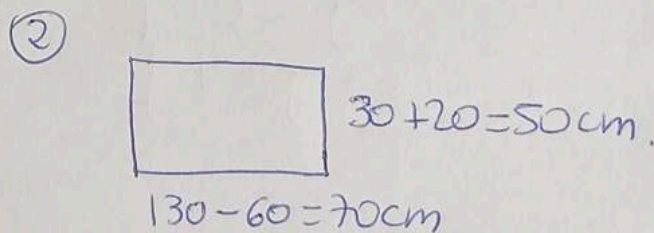 2
30+20=50cm.
130-60=70cm